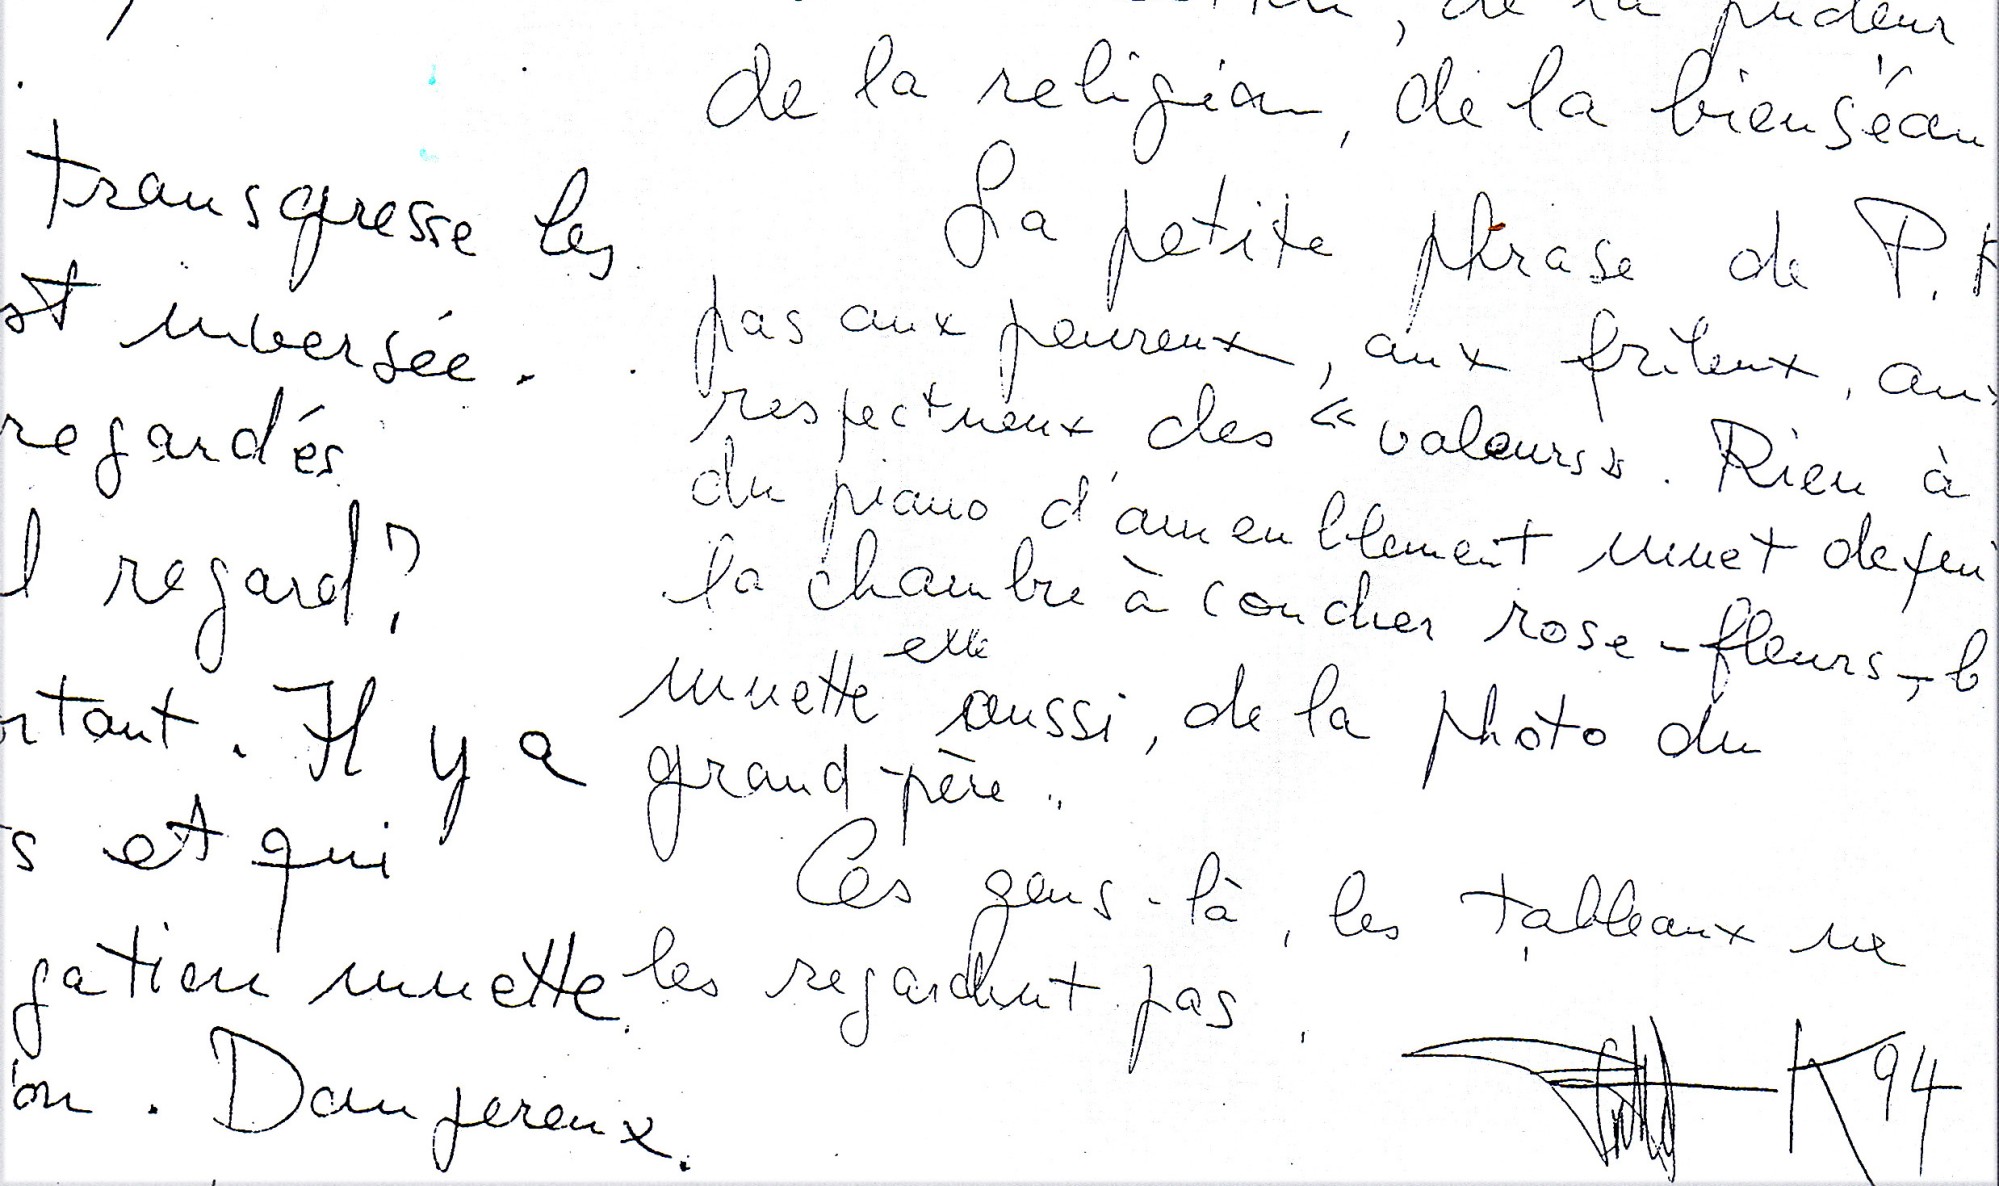 transgresse les
st inversée.
regardés
l regard?
rtant. Il y a
s et qui
gation muette
on. Dangereux.
, de la pudeur
de la religion, de la bienséan
La petite phrase de P.K
pas aux peureux, aux frileux, aux
respectueux des « valeurs ». Rien à
du piano d'ameublement muet depui
la chambre à coucher rose-fleurs, b
muette elle aussi, de la photo du
grand-père.
Ces gens-là, les tableaux ne
les regardent pas.
K 94